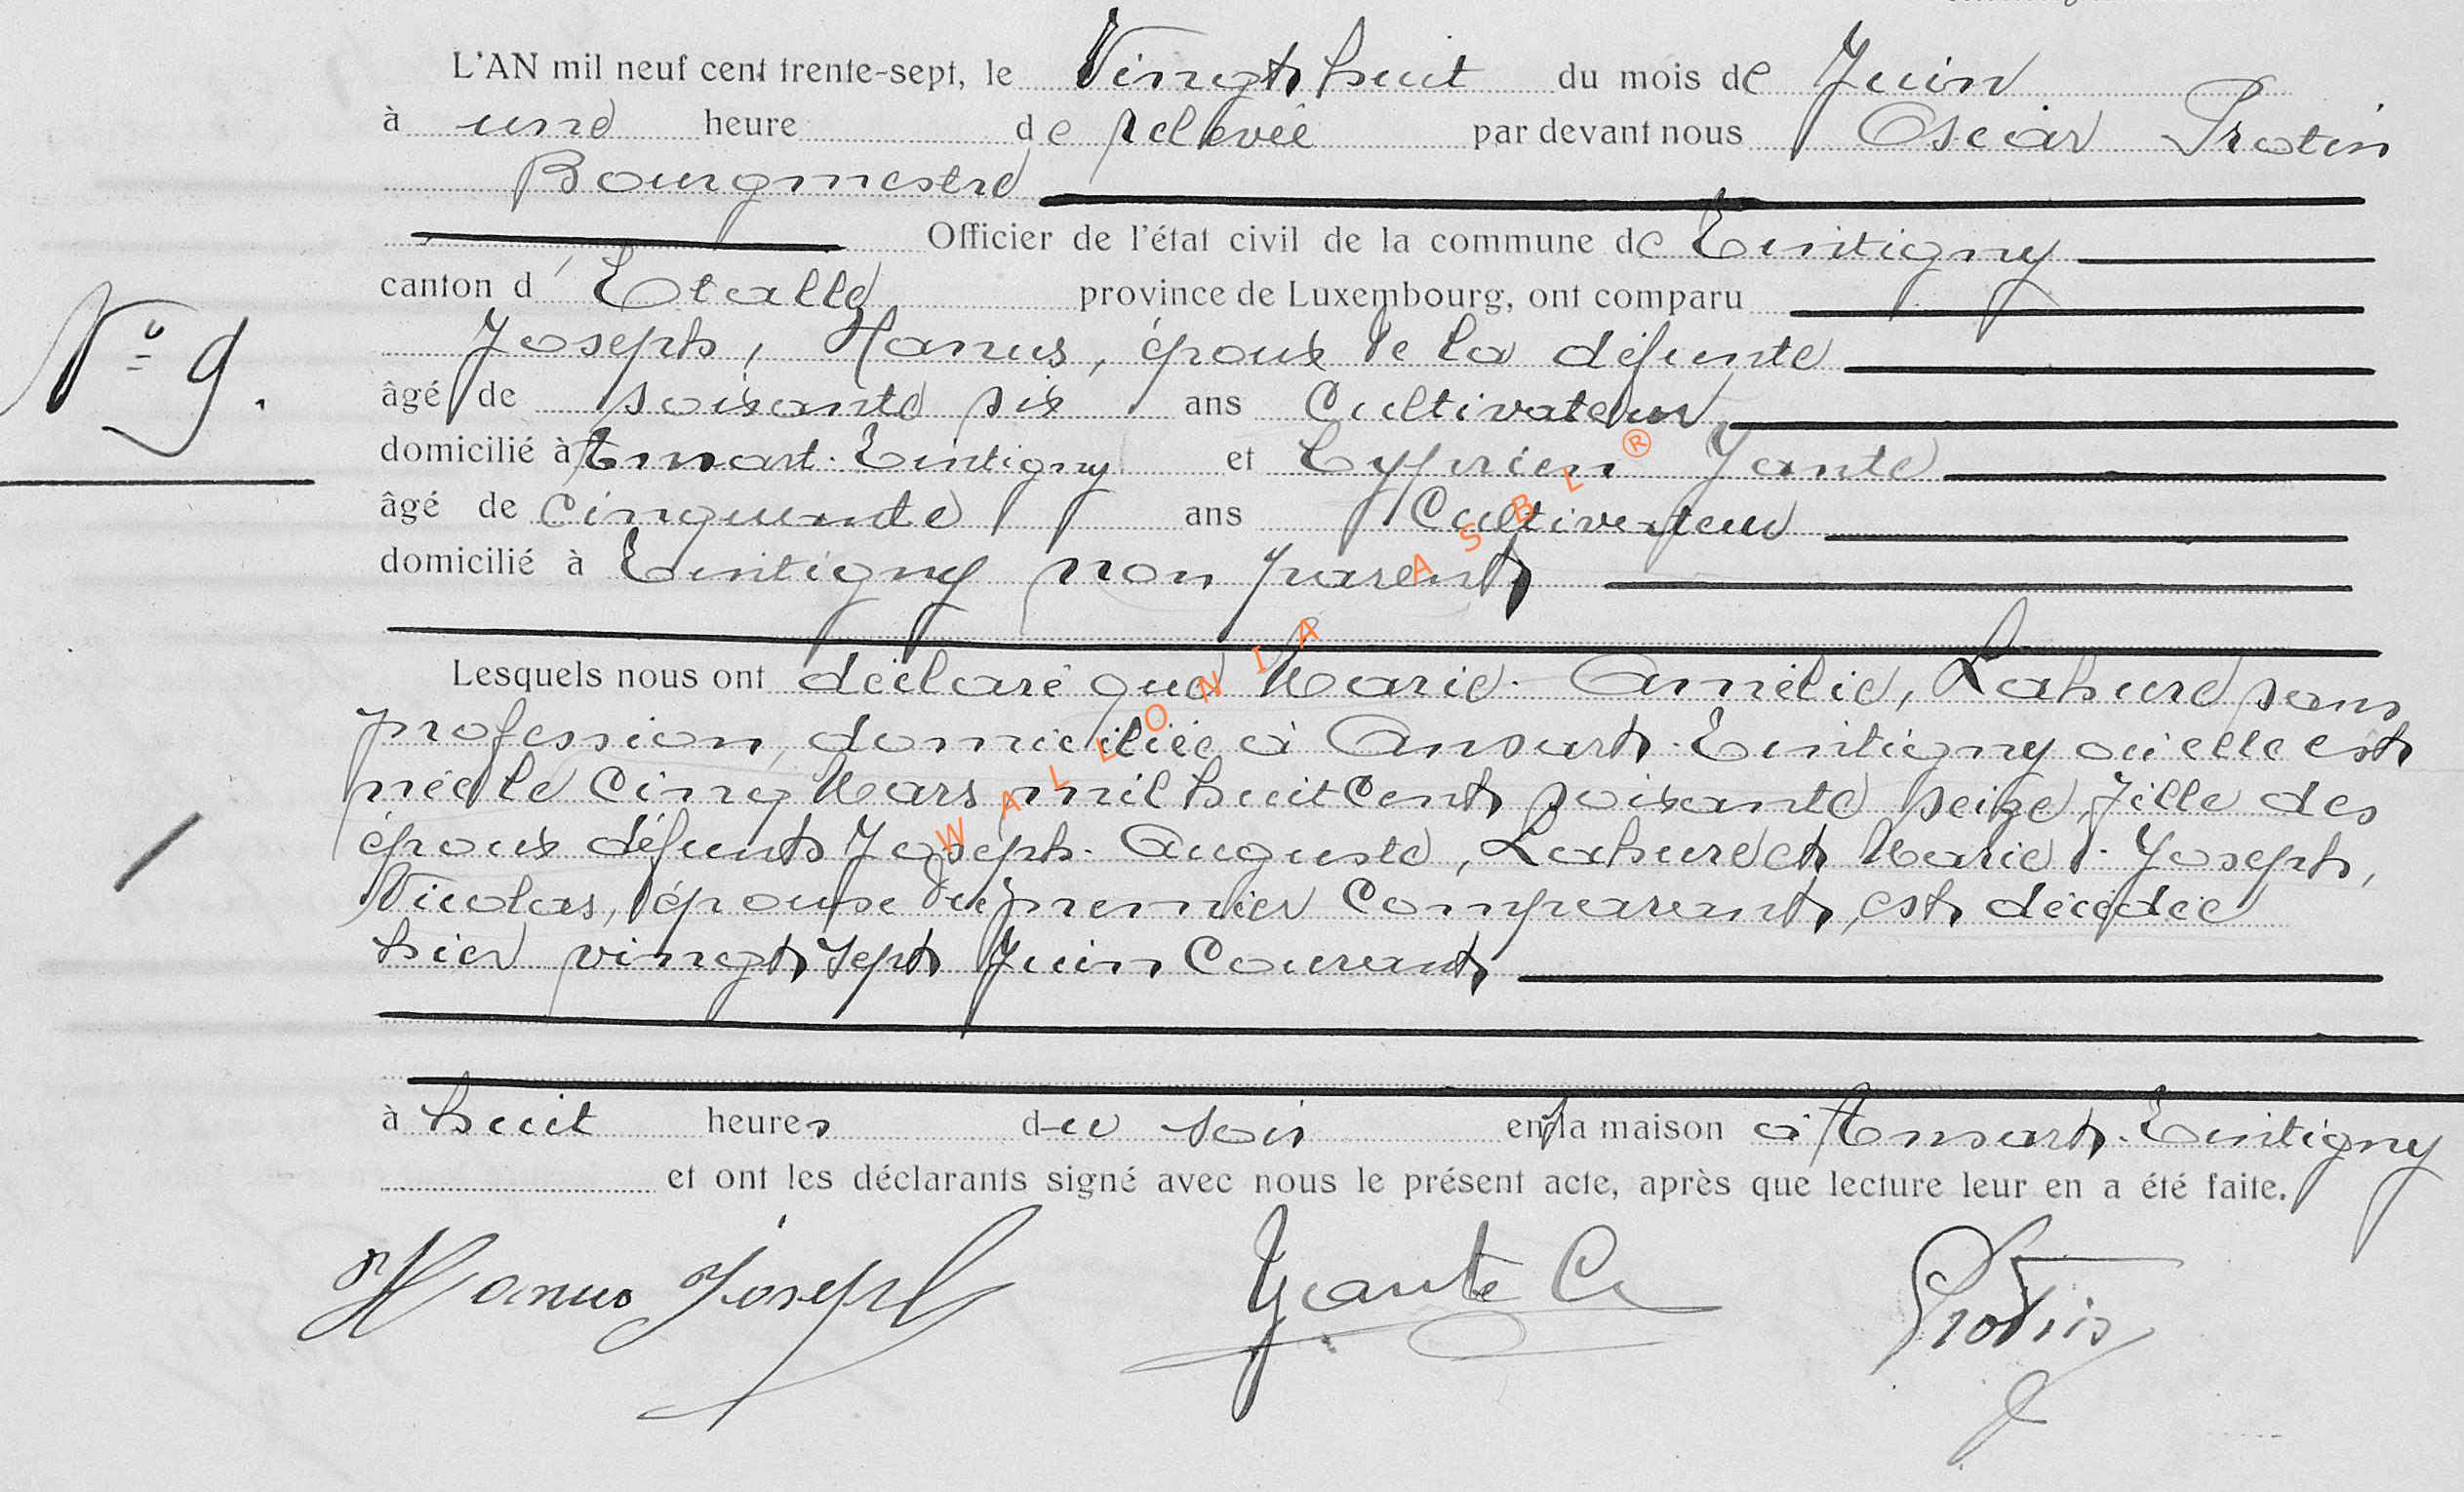 L'AN mil neuf cent trente-sept, le Vingt huit du mois de Juin
à une heure de relevée par devant nous Oscar Protin
Bourgmestre
Officier de l'état civil de la commune de Tintigny
canton d'Etalle province de Luxembourg, ont comparu
Joseph, Hanus, époux de la défunte
N° 9.
âgé de soixante six ans Cultivateur
domicilié à Ansart-Tintigny et Cyprien Jante
âgé de cinquante ans Cultivateur
domicilié à Tintigny non parent
Lesquels nous ont déclaré que Marie-Amélie, Lahure sans
profession, domiciliée à Ansart-Tintigny où elle est
née le Cinq Mars mil huit Cent soixante seize, fille des
époux défunts Joseph-Auguste, Lahure et Marie-Joseph,
Nicolas, épouse du premier Comparant, est décédée
hier vingt sept Juin Courant
à huit heures du soir en la maison à Ansart-Tintigny
et ont les déclarants signé avec nous le présent acte, après que lecture leur en a été faite.
Hanus Joseph Jeante C Protin
WALLONIA ASBL ®